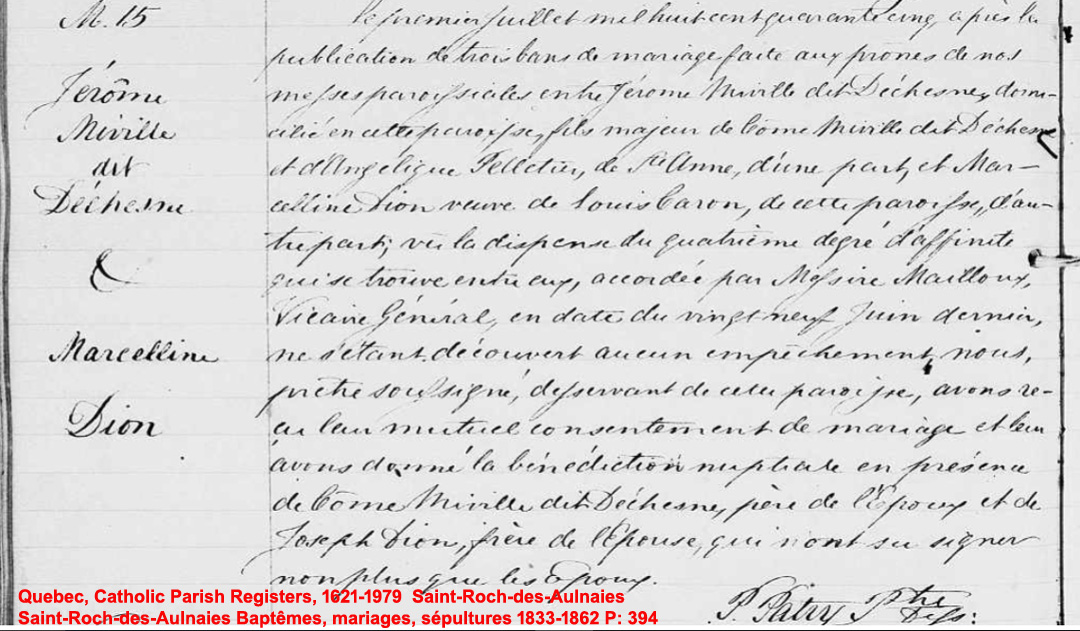 M. 15
Jérôme
Miville
dit
Déchesne
&
Marcelline
Dion
le premier juillet mil huit cent quarante cinq, après la
publication de trois bans de mariage faite aux prônes de nos
messes paroissiales entre Jérome Miville dit Déchesne, domi-
cilié en cette paroisse, fils majeur de Côme Miville dit Déchesne
et d'Angélique Pelletier, de Ste Anne, d'une part, et Mar-
celline Dion veuve de Louis Caron, de cette paroisse, d'au-
tre part; vû la dispense du quatrième degré d'affinité
qui se trouve entre eux, accordée par Messire Mailloux,
Vicaire Général, en date du vingt neuf Juin dernier,
ne s'étant découvert aucun empêchement, nous,
prêtre soussigné, desservant de cette paroisse, avons re-
çu leur mutuel consentement de mariage et leur
avons donné la bénédiction nuptiale en présence
de Côme Miville dit Déchesne, père de l'Epoux et de
Joseph Dion, frère de l'Epouse, qui n'ont su signer
non plus que les Epoux.
P. Patry Ptre
Dess:
Quebec, Catholic Parish Registers, 1621-1979 Saint-Roch-des-Aulnaies
Saint-Roch-des-Aulnaies Baptêmes, mariages, sépultures 1833-1862 P: 394